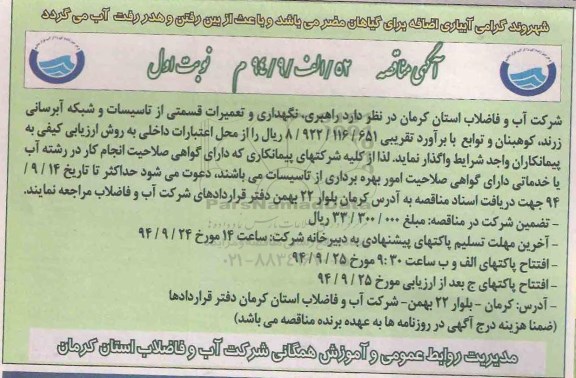 شهروند گرامی آبیاری اضافه برای گیاهان مضر می باشد و باعث از بین رفتن و هدر رفت آب می گردد
آگهی مناقصه ۵۲/الف/۹۴/۹ م نوبت اول
شرکت آب و فاضلاب استان کرمان در نظر دارد راهبری، نگهداری و تعمیرات قسمتی از تاسیسات و شبکه آبرسانی
زرند، کوهبنان و توابع با برآورد تقریبی ۸/۹۲۲/۱۱۶/۶۵۱ ریال را از محل اعتبارات داخلی به روش ارزیابی کیفی به
پیمانکاران واجد شرایط واگذار نماید. لذا از کلیه شرکتهای پیمانکاری که دارای گواهی صلاحیت انجام کار در رشته آب
یا خدماتی دارای گواهی صلاحیت امور بهره برداری از تاسیسات می باشند، دعوت می شود حداکثر تا تاریخ ۱۴ / ۹ /
۹۴ جهت دریافت اسناد مناقصه به آدرس کرمان بلوار ۲۲ بهمن دفتر قراردادهای شرکت آب و فاضلاب مراجعه نمایند.
- تضمین شرکت در مناقصه: مبلغ ۳۳/۳۰۰/۰۰۰ ریال
- آخرین مهلت تسلیم پاکتهای پیشنهادی به دبیرخانه شرکت: ساعت ۱۴ مورخ ۹۴/۹/۲۴
- افتتاح پاکتهای الف و ب ساعت ۹:۳۰ مورخ ۹۴/۹/۲۵
- افتتاح پاکتهای ج بعد از ارزیابی مورخ ۹۴/۹/۲۵
- آدرس: کرمان - بلوار ۲۲ بهمن- شرکت آب و فاضلاب استان کرمان دفتر قراردادها
(ضمنا هزینه درج آگهی در روزنامه ها به عهده برنده مناقصه می باشد)
مدیریت روابط عمومی و آموزش همگانی شرکت آب و فاضلاب استان کرمان